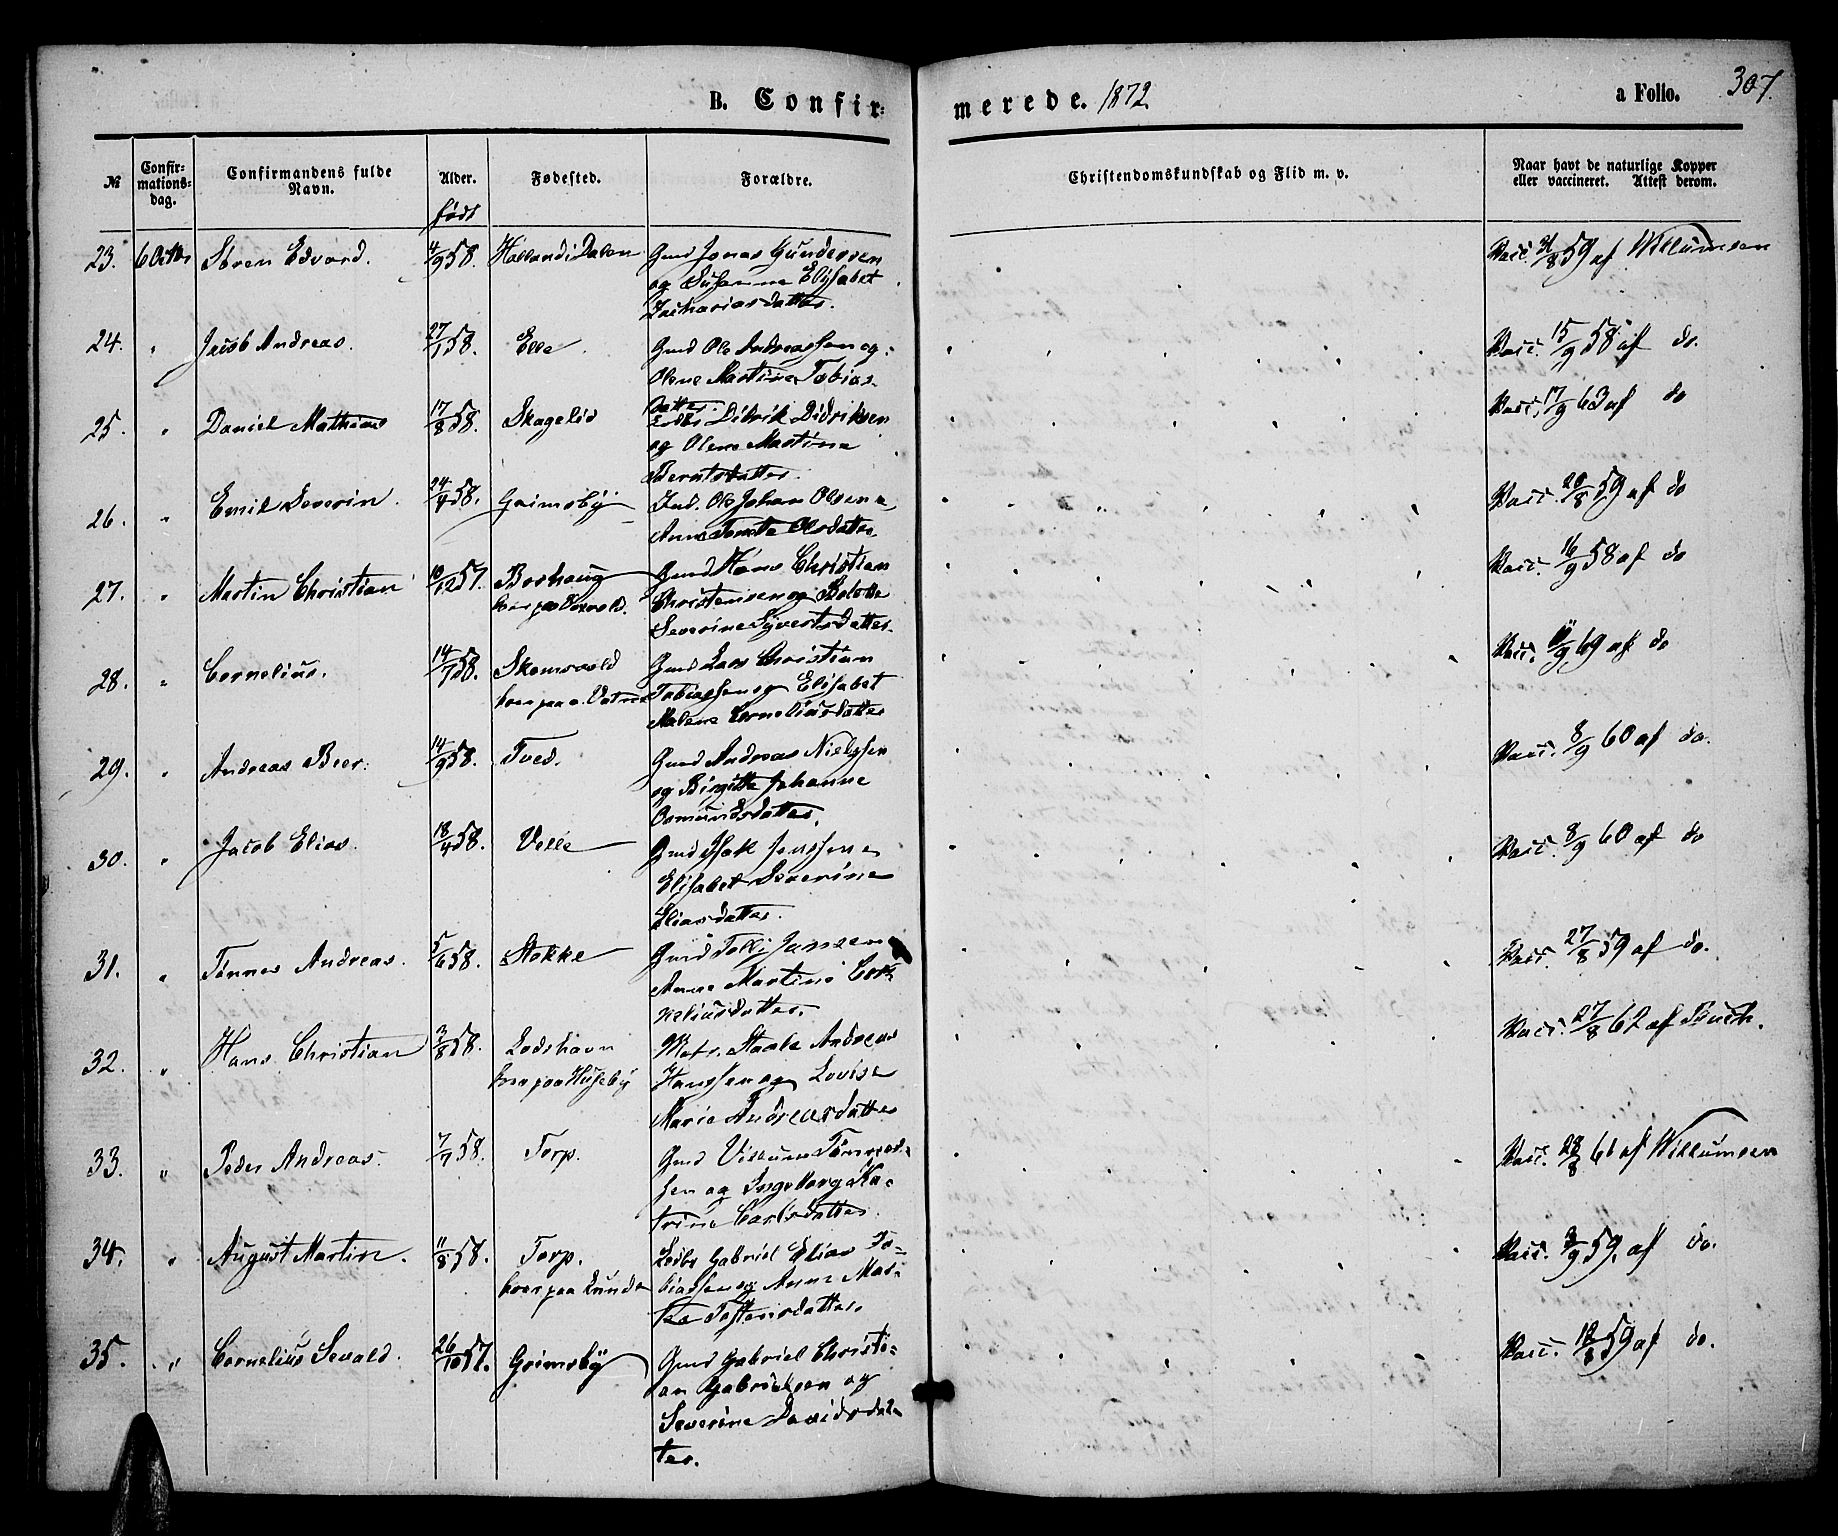 B. Confir=
merede. 1872
a Folio.
307.
№
Confir=
mations=
dag.
Confirmandens fulde
Navn.
Alder.
født
Fødested.
Forældre.
Christendomskundskab og Flid m. v.
Naar havt de naturlige Kopper
eller vaccineret. Attest derom.
23. 6 Octbr Søren Edvard. 4/9 58. Holland i Dalen Gmd Jonas Gundersen
og Susanne Elisabet
Zachariasdatter.
Vacc. 31/8 59 af Willumsen
24. " Jacob Andreas. 27/1 58. Elle. Gmd Ole Andreassen og
Olene Martine Tobias-
datter.
Vacc. 15/9 58 af do.
25. " Daniel Mathias 17/8 58. Skagelid Didrik Didriksen
og Olene Martine
Berntsdatter.
Vacc. 17/9 63 af do
26. " Emil Severin. 24/4 58. Grimsby Ind. Ole Johan Olsen
Anne Tomette Olsdatter.
Vacc. 20/8 59 af do
27. " Martin Christian 10/12 57. Boshaug Gmd Hans Christian
Christensen og Bolette
Severine Syvertsdatter.
Vacc. 16/9 58 af do
28. " Cornelius. 14/7 58. Gmd Lars Christian
Tobiassen og Elisabet
Malene Corneliusdatter
Vacc. 69 af do
29. " Andreas Beer. 14/9 58. Tved. Gmd Andreas Nielssen
og Birgitte Johanne
Osmundsdatter.
Vacc. 8/9 60 af do.
30. " Jacob Elias. 18/4 58. Velle Gmd Isak Jenssen
Elisabet Severine
Eliasdatter.
Vacc. 8/9 60 af do
31. " Tønnes Andreas. 5/6 58. Stokke Gmd Tollif Jansen
Anne Martine Cor-
neliusdatter.
Vacc. 27/8 59 af do.
32. " Hans Christian 3/8 58. Lodshavn
paa Huseby
Matr. Staale Andreas
Hanssen og Lovise
Marie Andreasdatter
Vacc. 27/8 62 af Buch.
33. " Peder Andreas. 7/7 58. Torp. Gmd Villum Tønnes-
sen og Ingeborg Ka-
trine Carlsdatter.
Vacc. 28/8 61 af Willumsen
34. " August Martin. 11/8 58. Torp.
paa Lunde
Lods Gabriel Elias To-
biassen og Anne Mar-
the Tostensdatter.
Vacc. 3/9 59. af do.
35. " Cornelius Sevald. 26/10 57. Grimsby Gmd Gabriel Christi-
an Gabrielsen og
Severine Davidsdat-
ter.
Vacc. 18/8 59 af do.